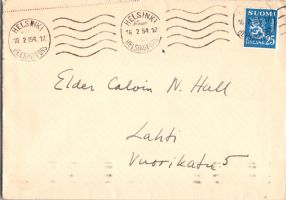 HELSINKI
16.2.54.17
HELSINGFORS
HELSINKI
16.2.54.17
HELSINGFORS
SUOMI
FINLAND 25
Elder Calvin N. Hall
Lahti
Vuorikatu 5